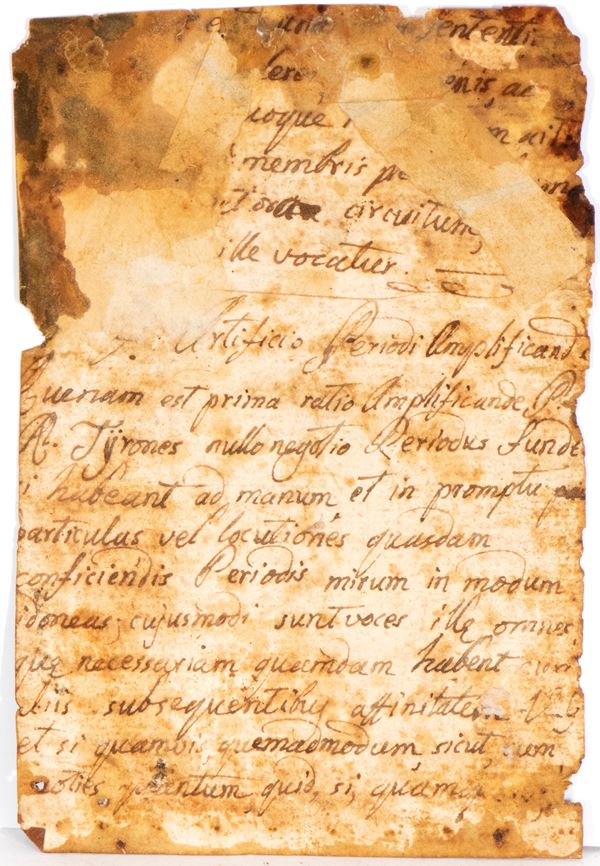 sententi
nis ac
membris
circuitum,
ille vocatur.
Artificio Periodi Amplificand
Quenam est prima ratio Amplificande P
R. Tyrones nullo negotio Periodus funde
i habeant ad manum et in promptu
particulas vel locutiones quasdam
conficiendis Periodis mirum in modum
idoneas; cujusmodi sunt voces ille omnes,
que necessariam quamdam habent cum
aliis subsequentibus affinitatem V. g.
et si quamvis, quemadmodum, sicut, cum,
quid, si, quamq